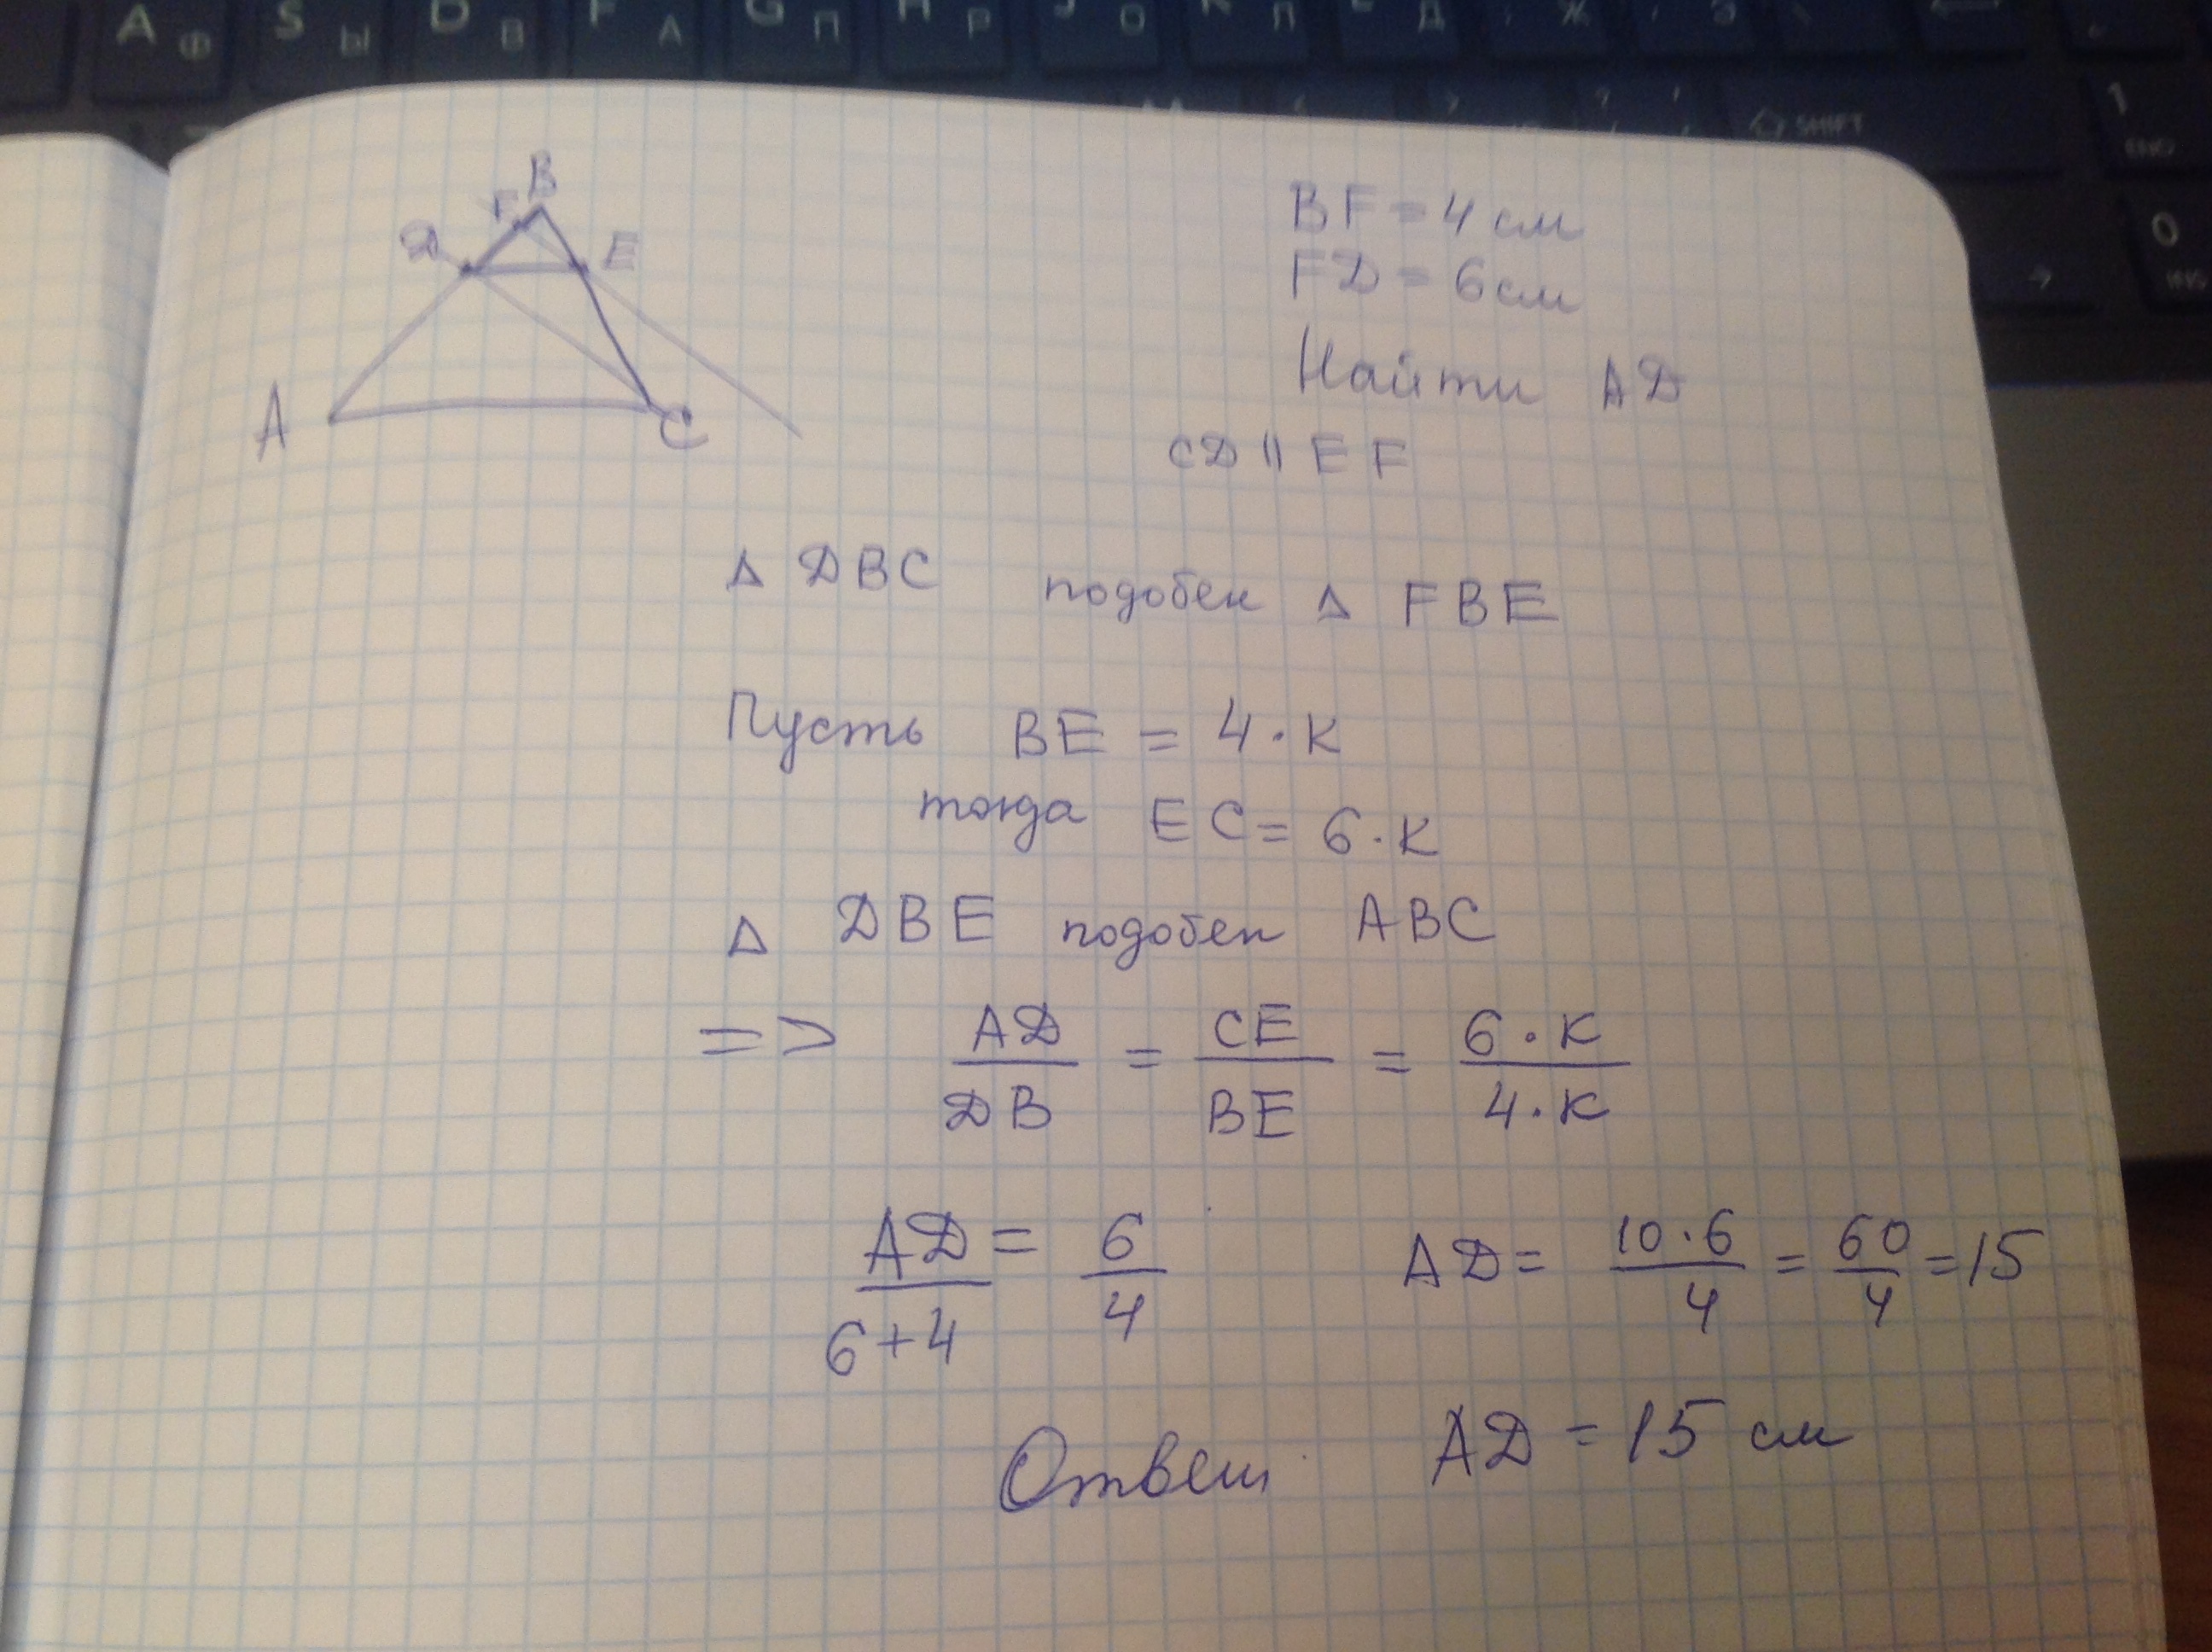 A Ф S Ы D В F А G П H Р J О K Л Д Ж Э
SHIFT
1
END
0
INS
B
F
D
E
A
C
BF = 4 см
FD = 6 см
Найти AD
CD || EF
Δ DBC подобен Δ FBE
Пусть BE = 4 · K
тогда EC = 6 · K
Δ DBE подобен ABC
=> AD/DB = CE/BE = 6 · K/4 · K
AD/6+4 = 6/4 AD = 10 · 6/4 = 60/4 = 15
Ответ AD = 15 см